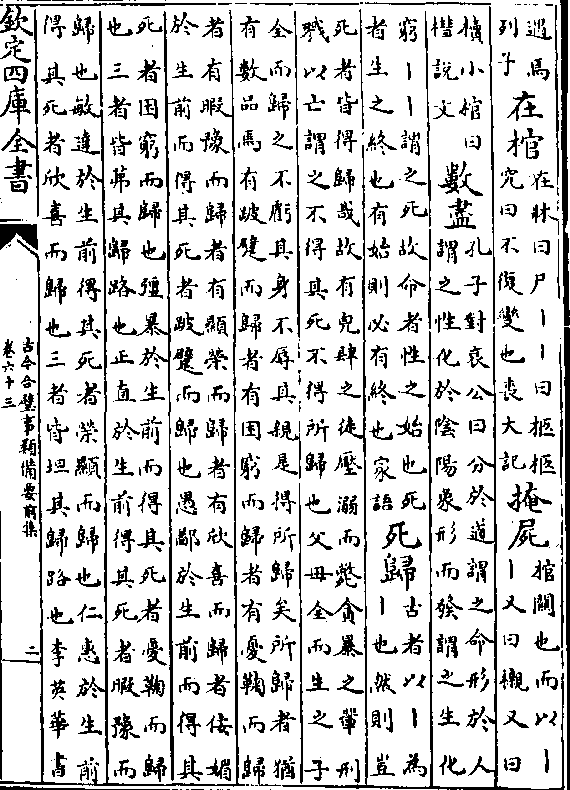 過焉
列子
在棺
在牀曰尸丨丨曰柩柩
究曰不復變也喪大記
掩屍
棺關也而以丨
丨又曰櫬又曰
櫝小棺曰
槥說文
數盡
孔子對哀公曰分於道謂之命形於人
謂之性化於陰陽象形而發謂之生化
窮丨丨謂之死故命者性之始也死
者生之終也有始則必有終也家語
死歸
古者以丨為
丨也然則豈
死者皆得歸哉故有兇肆之徒壓溺而斃貪暴之輩刑
戮以亡謂之不得其死不得所歸也父母全而生之子
全而歸之不虧其身不辱其親是得所歸矣所歸者猶
有數品焉有跛躄而歸者有困窮而歸者有憂鞠而歸
者有暇豫而歸者有顯榮而歸者有欣喜而歸者佞媚
於生前而得其死者跛躄而歸也愚鄙於生前而得其
死者困窮而歸也彊暴於生前而得其死者憂鞠而歸
也三者皆茀其歸路也正直於生前得其死者暇豫而
歸也敏達於生前得其死者榮顯而歸也仁惠於生前
得其死者欣喜而歸也三者皆坦其歸路也李英華書
欽定四庫全書
古今合璧事類備要前集
卷六十三
二